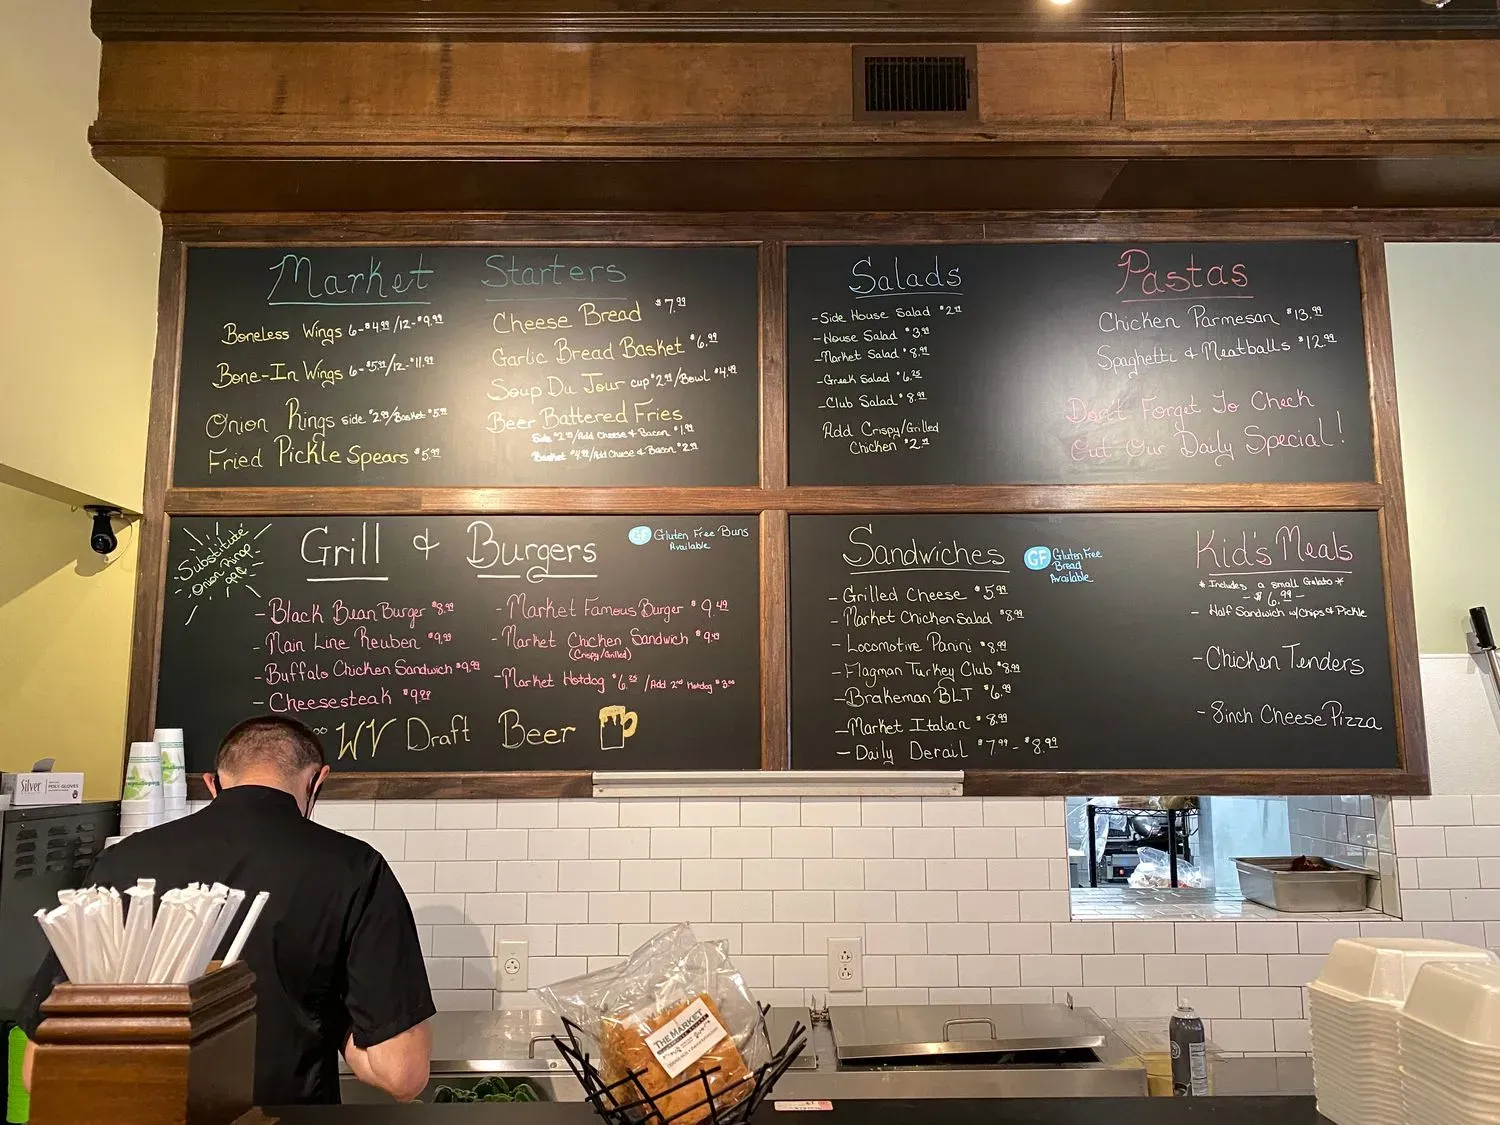 Market Starters
Boneless Wings 6-$4.99/12-$9.99
Bone-In Wings 6-$5.99/12-$11.99
Onion Rings side $2.99/Basket $5.99
Fried Pickle Spears $5.99
Cheese Bread $7.99
Garlic Bread Basket $6.99
Soup Du Jour cup $2.99/Bowl $4.49
Beer Battered Fries
Side $2.99/Add Cheese & Bacon $1.99
Basket $4.99/Add Cheese & Bacon $2.99
Salads
-Side House Salad
-House Salad
-Market Salad $8.99
-Greek Salad $6.25
-Club Salad $8.99
Add Crispy/Grilled
Chicken
Pastas
Chicken Parmesan $13.99
Spaghetti & Meatballs $12.99
Don't Forget To Check
Out Our Daily Special!
Substitute
Onion Rings
99¢
Grill & Burgers
GF Gluten Free Buns
Available
-Black Bean Burger $8.99
-Main Line Reuben $9.99
-Buffalo Chicken Sandwich $9.99
-Cheesesteak
-Market Famous Burger $9.49
-Market Chicken Sandwich $9.49
(Crispy/Grilled)
-Market Hotdog $6.25 /Add 2nd Hotdog $3.00
WV Draft Beer
Sandwiches
GF Gluten Free
Bread
Available
-Grilled Cheese $5.99
-Market Chicken Salad $8.99
-Locomotive Panini $8.99
-Flagman Turkey Club $8.99
-Brakeman BLT $6.99
-Market Italian $8.99
-Daily Derail $7.99 - $8.99
Kid's Meals
*Includes a small Gelato*
-$6.99-
- Half Sandwich w/Chips & Pickle
-Chicken Tenders
-8inch Cheese Pizza
Silver
POLY GLOVES
THE MARKET